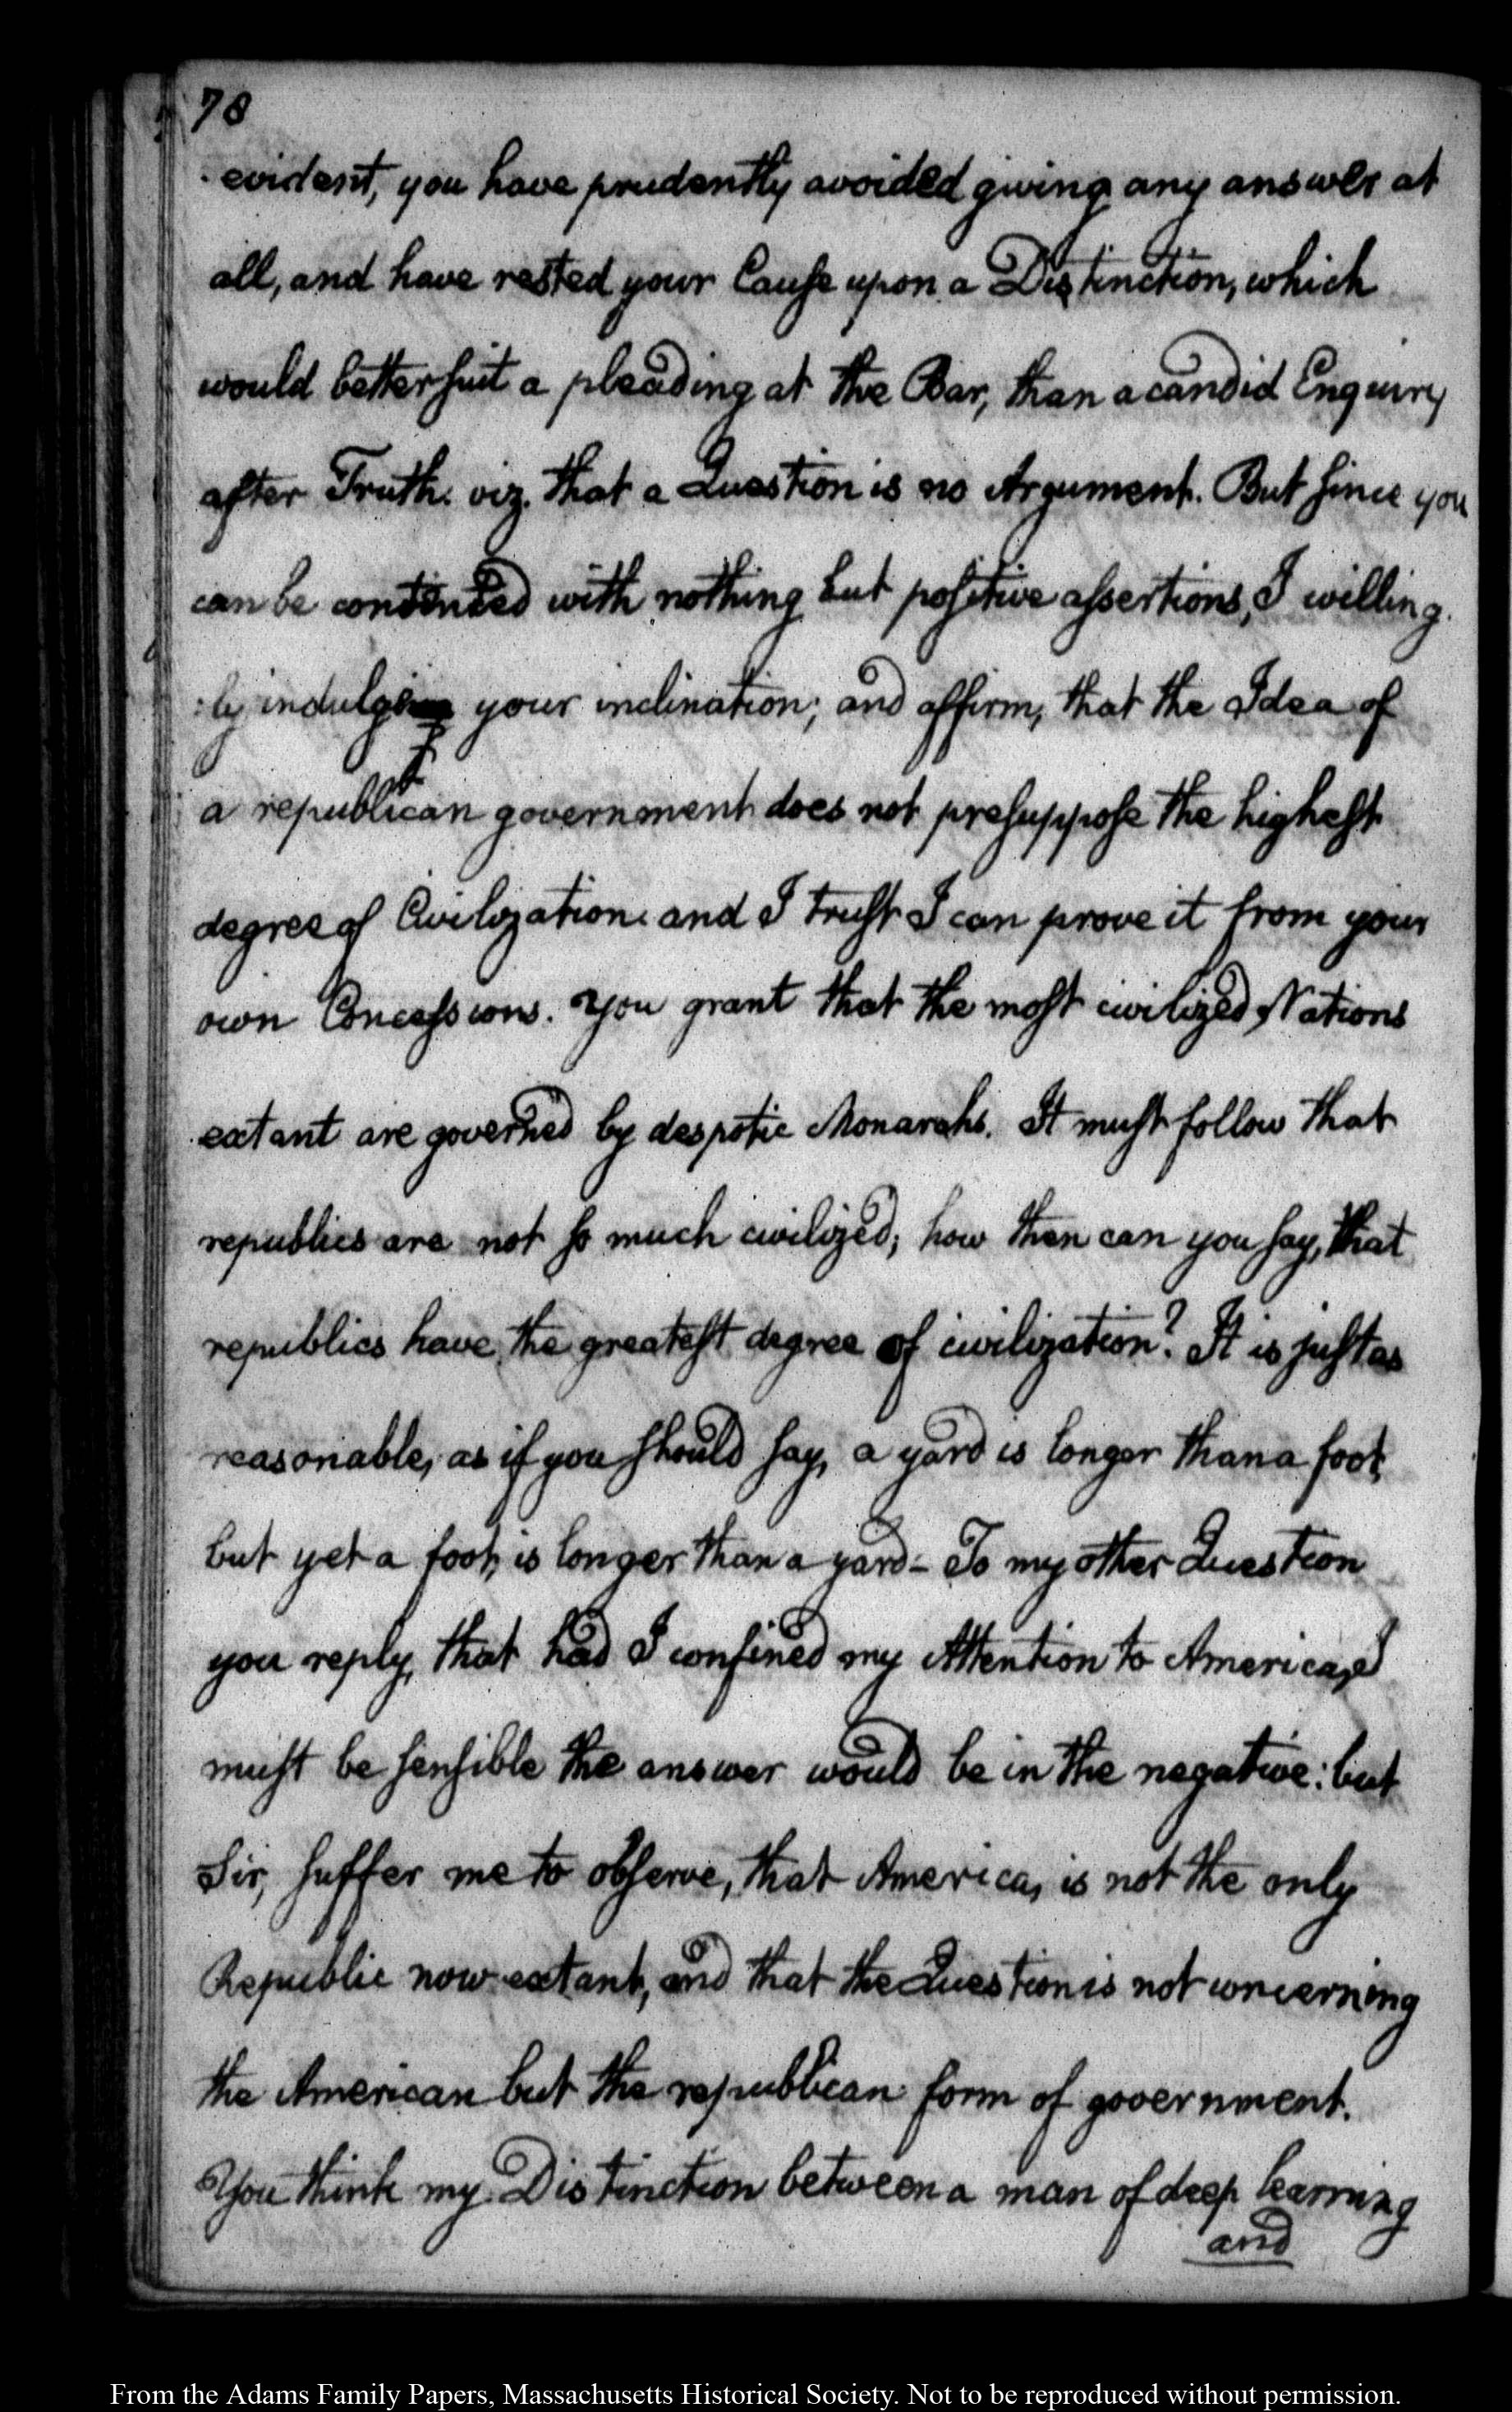 78
evident, you have prudently avoided giving any answer at
all, and have rested your Cause upon a Distinction, which
would better suit a pleading at the Bar, than a candid Enquiry
after Truth. viz. that a Question is no Argument. But since you
can be contented with nothing but positive assertions, I willing-
:ly indulge your inclination; and affirm, that the Idea of
a republican government does not presuppose the highest
degree of Civilization. and I trust I can prove it from your
own Concessions. You grant that the most civilized Nations
extant are governed by despotic Monarchs. It must follow that
republics are not so much civilized; how then can you say, that
republics have the greatest degree of civilization? It is just as
reasonable, as if you should say, a yard is longer than a foot,
but yet a foot, is longer than a yard- To my other Question
you reply, that had I confined my Attention to America, I
must be sensible the answer would be in the negative: but
Sir, suffer me to observe, that America, is not the only
Republic now extant, and that the Question is not concerning
the American but the republican form of government.
You think my Distinction between a man of deep learning
and
From the Adams Family Papers, Massachusetts Historical Society. Not to be reproduced without permission.